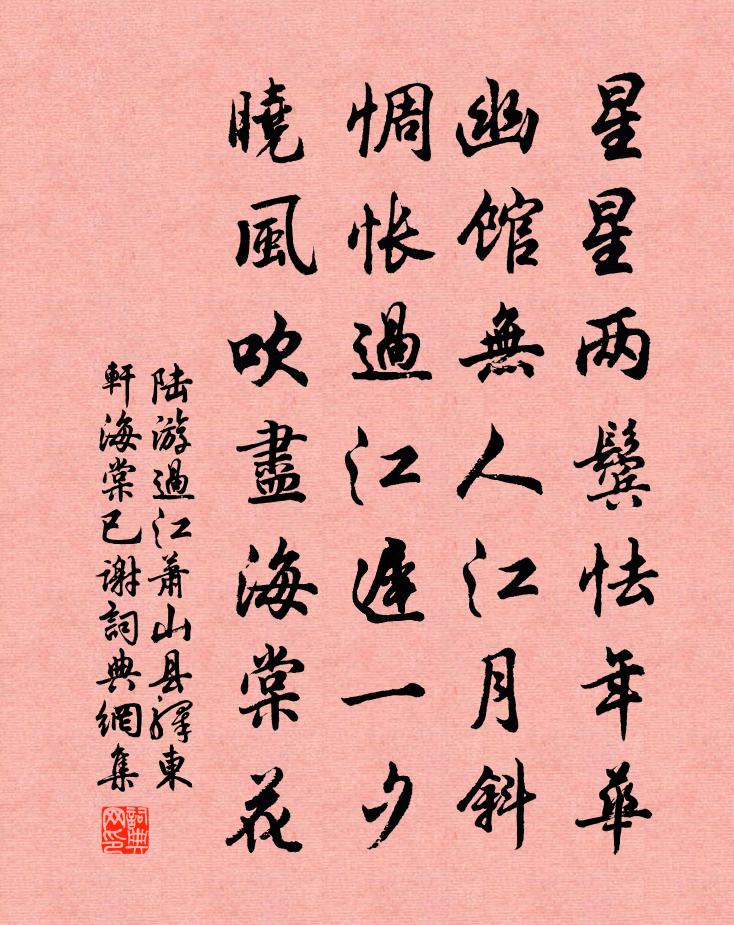 星星两鬓怯年華
幽館無人江月斜
惆怅過江遲一夕
曉風吹盡海棠花
陆游過江萧山县驿東
軒海棠已谢詞典網集
詞典
网印